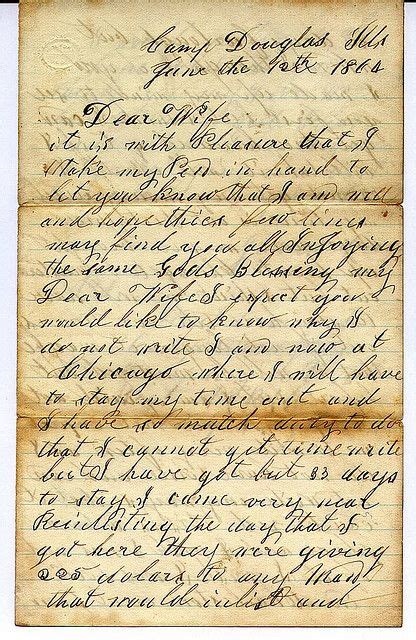 Camp Douglas Ills
June the 12th 1864
Dear Wife
it is with Pleasure that I
take my Pen in hand to
let you know that I am well
and hope thies few lines
may find you all Injoying
the same Gods Blessing my
Dear Wife I expect you
would like to know why I
do not write I am now at
Chicago where I will have
to stay my time out and
I have so mutch duty to do
that I cannot get time write
but I have got but 33 days
to stay I came very near
Reinlisting the day that I
got here they were giving
225 dolars to any man
that would inlist and